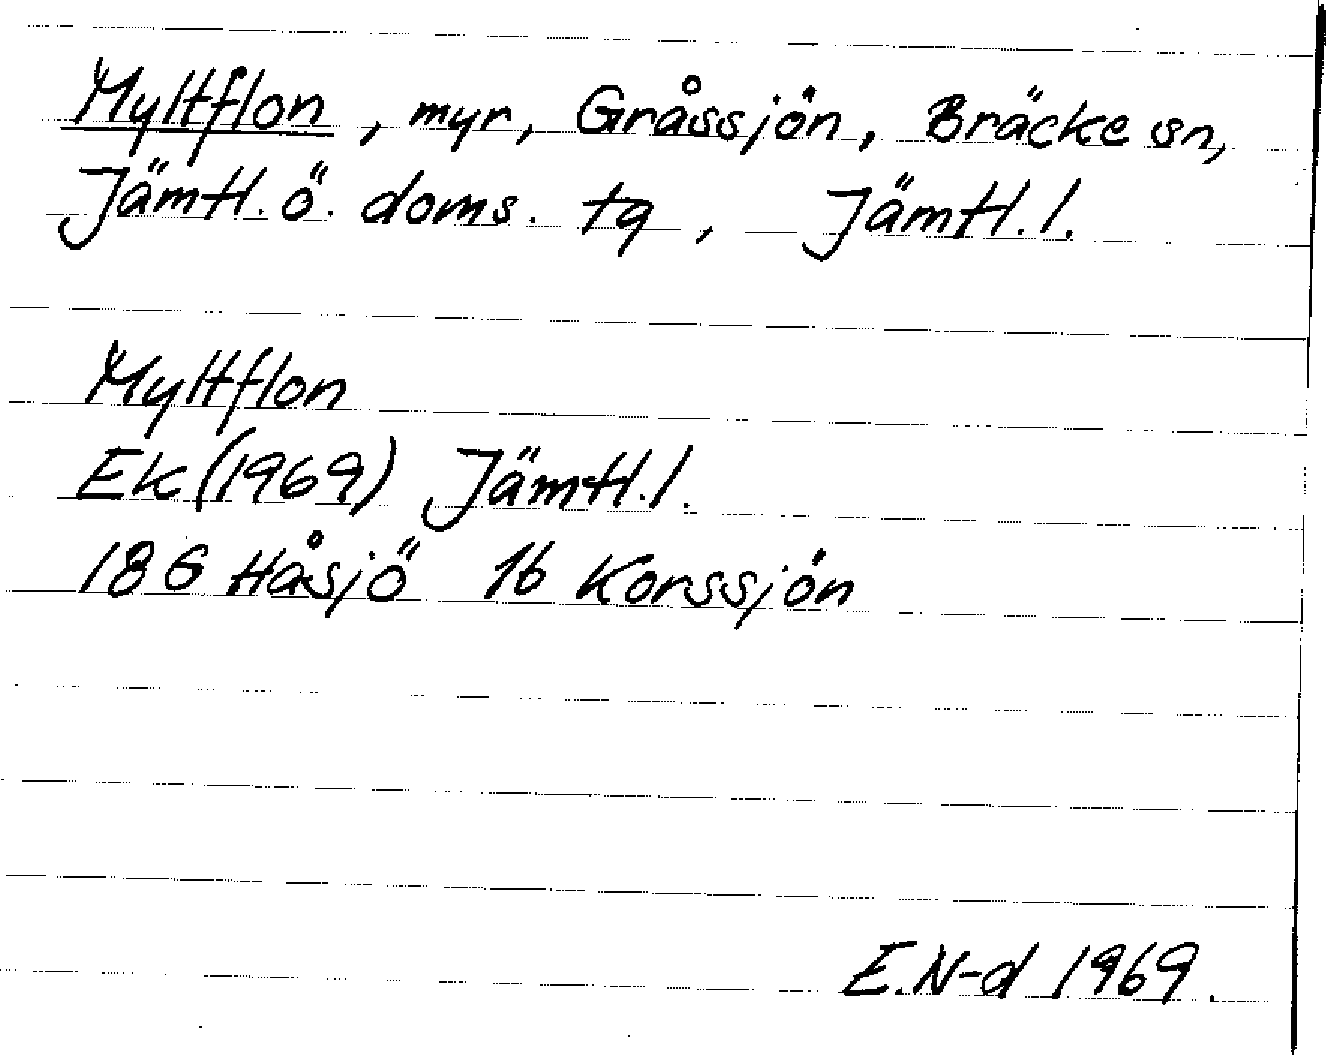 Myltflon, myr, Gråssjön, Bräcke sn,
Jämtl. ö. doms. tg, Jämtl. l.
Myltflon
Ek (1969) Jämtl. l.
18 G Håsjö 1b Korssjön
E. N-d 1969.